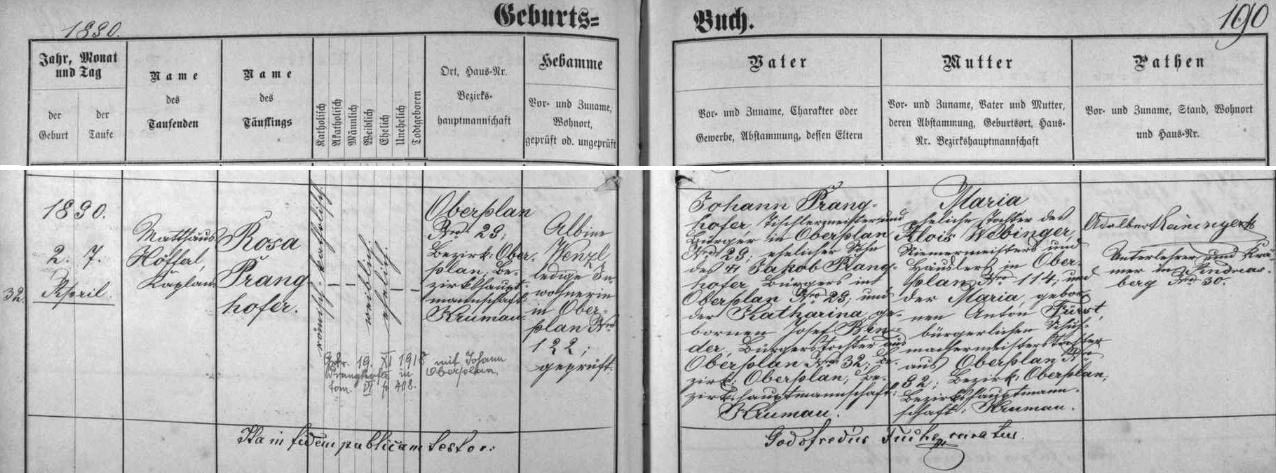 1890.
Geburts=
Buch.
190
Jahr, Monat
und Tag
der
Geburt
der
Taufe
Name
des
Taufenden
Name
des
Täuflings
Katholisch
Akatholisch
Männlich
Weiblich
Ehelich
Unehelich
Todtgeboren
Ort, Haus-Nr.
Bezirks-
hauptmannschaft
Hebamme
Vor- und Zuname,
Wohnort,
geprüft od. ungeprüft
Vater
Vor- und Zuname, Charakter oder
Gewerbe, Abstammung, dessen Eltern
Mutter
Vor- und Zuname, Vater und Mutter,
deren Abstammung, Geburtsort, Haus-
Nr. Bezirkshauptmannschaft
Pathen
Vor- und Zuname, Stand, Wohnort
und Haus-Nr.
32.
1890.
2. 7.
April.
Matthäus
Kaplan
Rosa
Prang-
hofer.
römisch-katholisch
weiblich
ehelich
Oberplan
Nro 29,
Bezirk Ober-
plan, Be-
zirkshaupt-
mannschaft
Krumau.
Albine
Wenzl
ledige In-
wohnerin
in Ober-
plan Nro
122;
geprüft.
Getr. 19. XI 1918 mit Johann
Pranghofer in Oberplan.
tom. VI f. 408.
Johann Prang-
hofer, Tischlermeister und
Bürger in Oberplan
Nro 29; ehelicher Sohn
des † Jakob Prang-
hofer, Bürgers in
Oberplan Nro 28, und
der Katharina ge-
bornen Josef Bin-
der, Bürgerstochter aus
Oberplan Nro 32, Be-
zirk Oberplan, Be-
zirkshauptmannschaft
Krumau.
Maria
eheliche Tochter des
Alois Webinger,
Riemermeisters und
Häuslers in Ober-
plan Nro 114, und
der Maria, gebor-
nen Anton Fürst,
bürgerlichen Schuh-
machermeisterstochter
aus Oberplan Nro
82; Bezirk Oberplan,
Bezirkshauptmann-
schaft Krumau.
Adalbert
Unterlehrer und Krä-
mer in Andreas-
berg Nro 30.
Ita in fidem publicam testor:
Godofredus